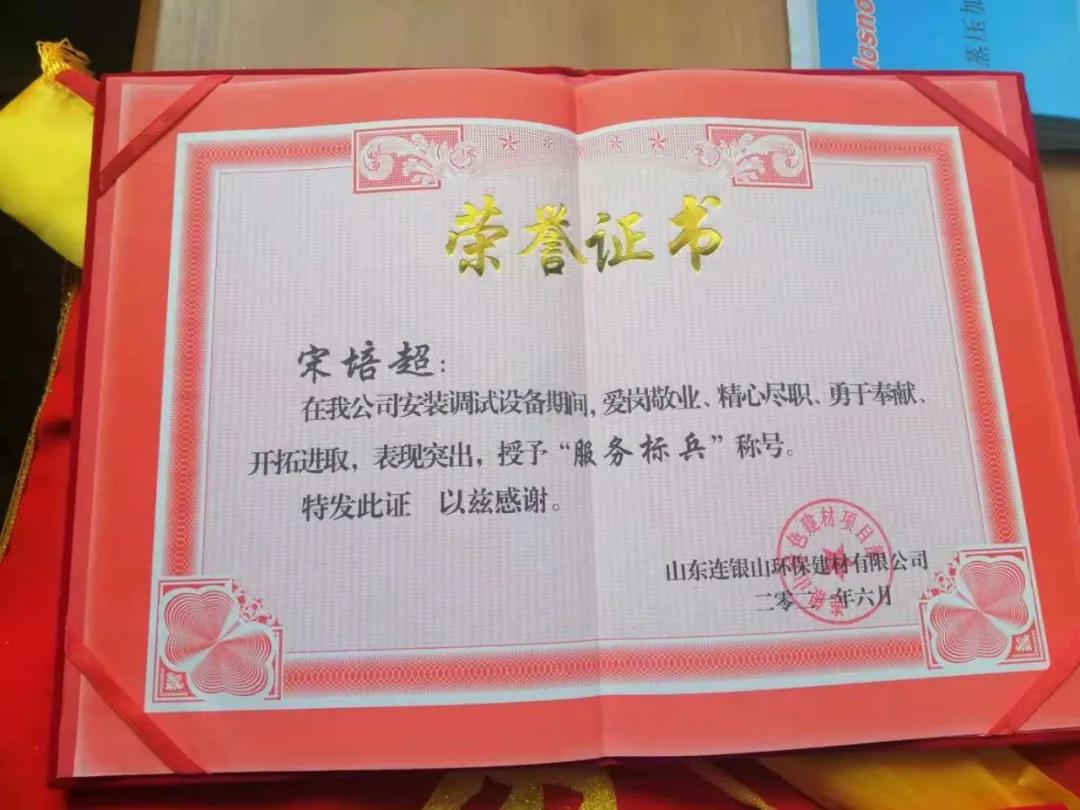 荣誉证书
宋培超：
在我公司安装调试设备期间，爱岗敬业、精心尽职、勇于奉献、
开拓进取，表现突出，授予“服务标兵”称号。
特发此证 以兹感谢。
山东连银山环保建材有限公司
二零二一年六月
色建材项目
蒸压加